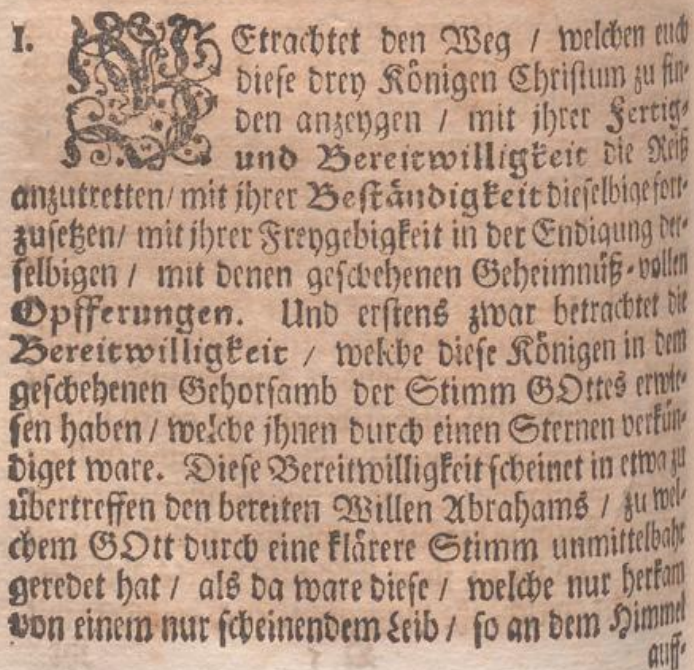 I. BEtrachtet den Weg / welchen euch
diese drey Königen Christum zu fin-
den anzeygen / mit jhrer Fertig-
und Bereitwilligkeit die Reiß
anzutretten / mit jhrer Beständigkeit dieselbige fort-
zusetzen / mit jhrer Freygebigkeit in der Endigung der-
selbigen / mit denen geschehenen Geheimnüß-vollen
Opfferungen. Und erstens zwar betrachtet die
Bereitwilligkeit / welche diese Königen in dem
geschehenen Gehorsamb der Stimm GOttes erwie-
sen haben / welche jhnen durch einen Sternen verkün-
diget ware. Diese Bereitwilligkeit scheinet in etwa zu
übertreffen den bereiten Willen Abrahams / zu wel-
chem GOtt durch eine klärere Stimm unmittelbahr
geredet hat / als da ware diese / welche nur herkam
von einem nur scheinendem Leib / so an dem Himmel
auff-